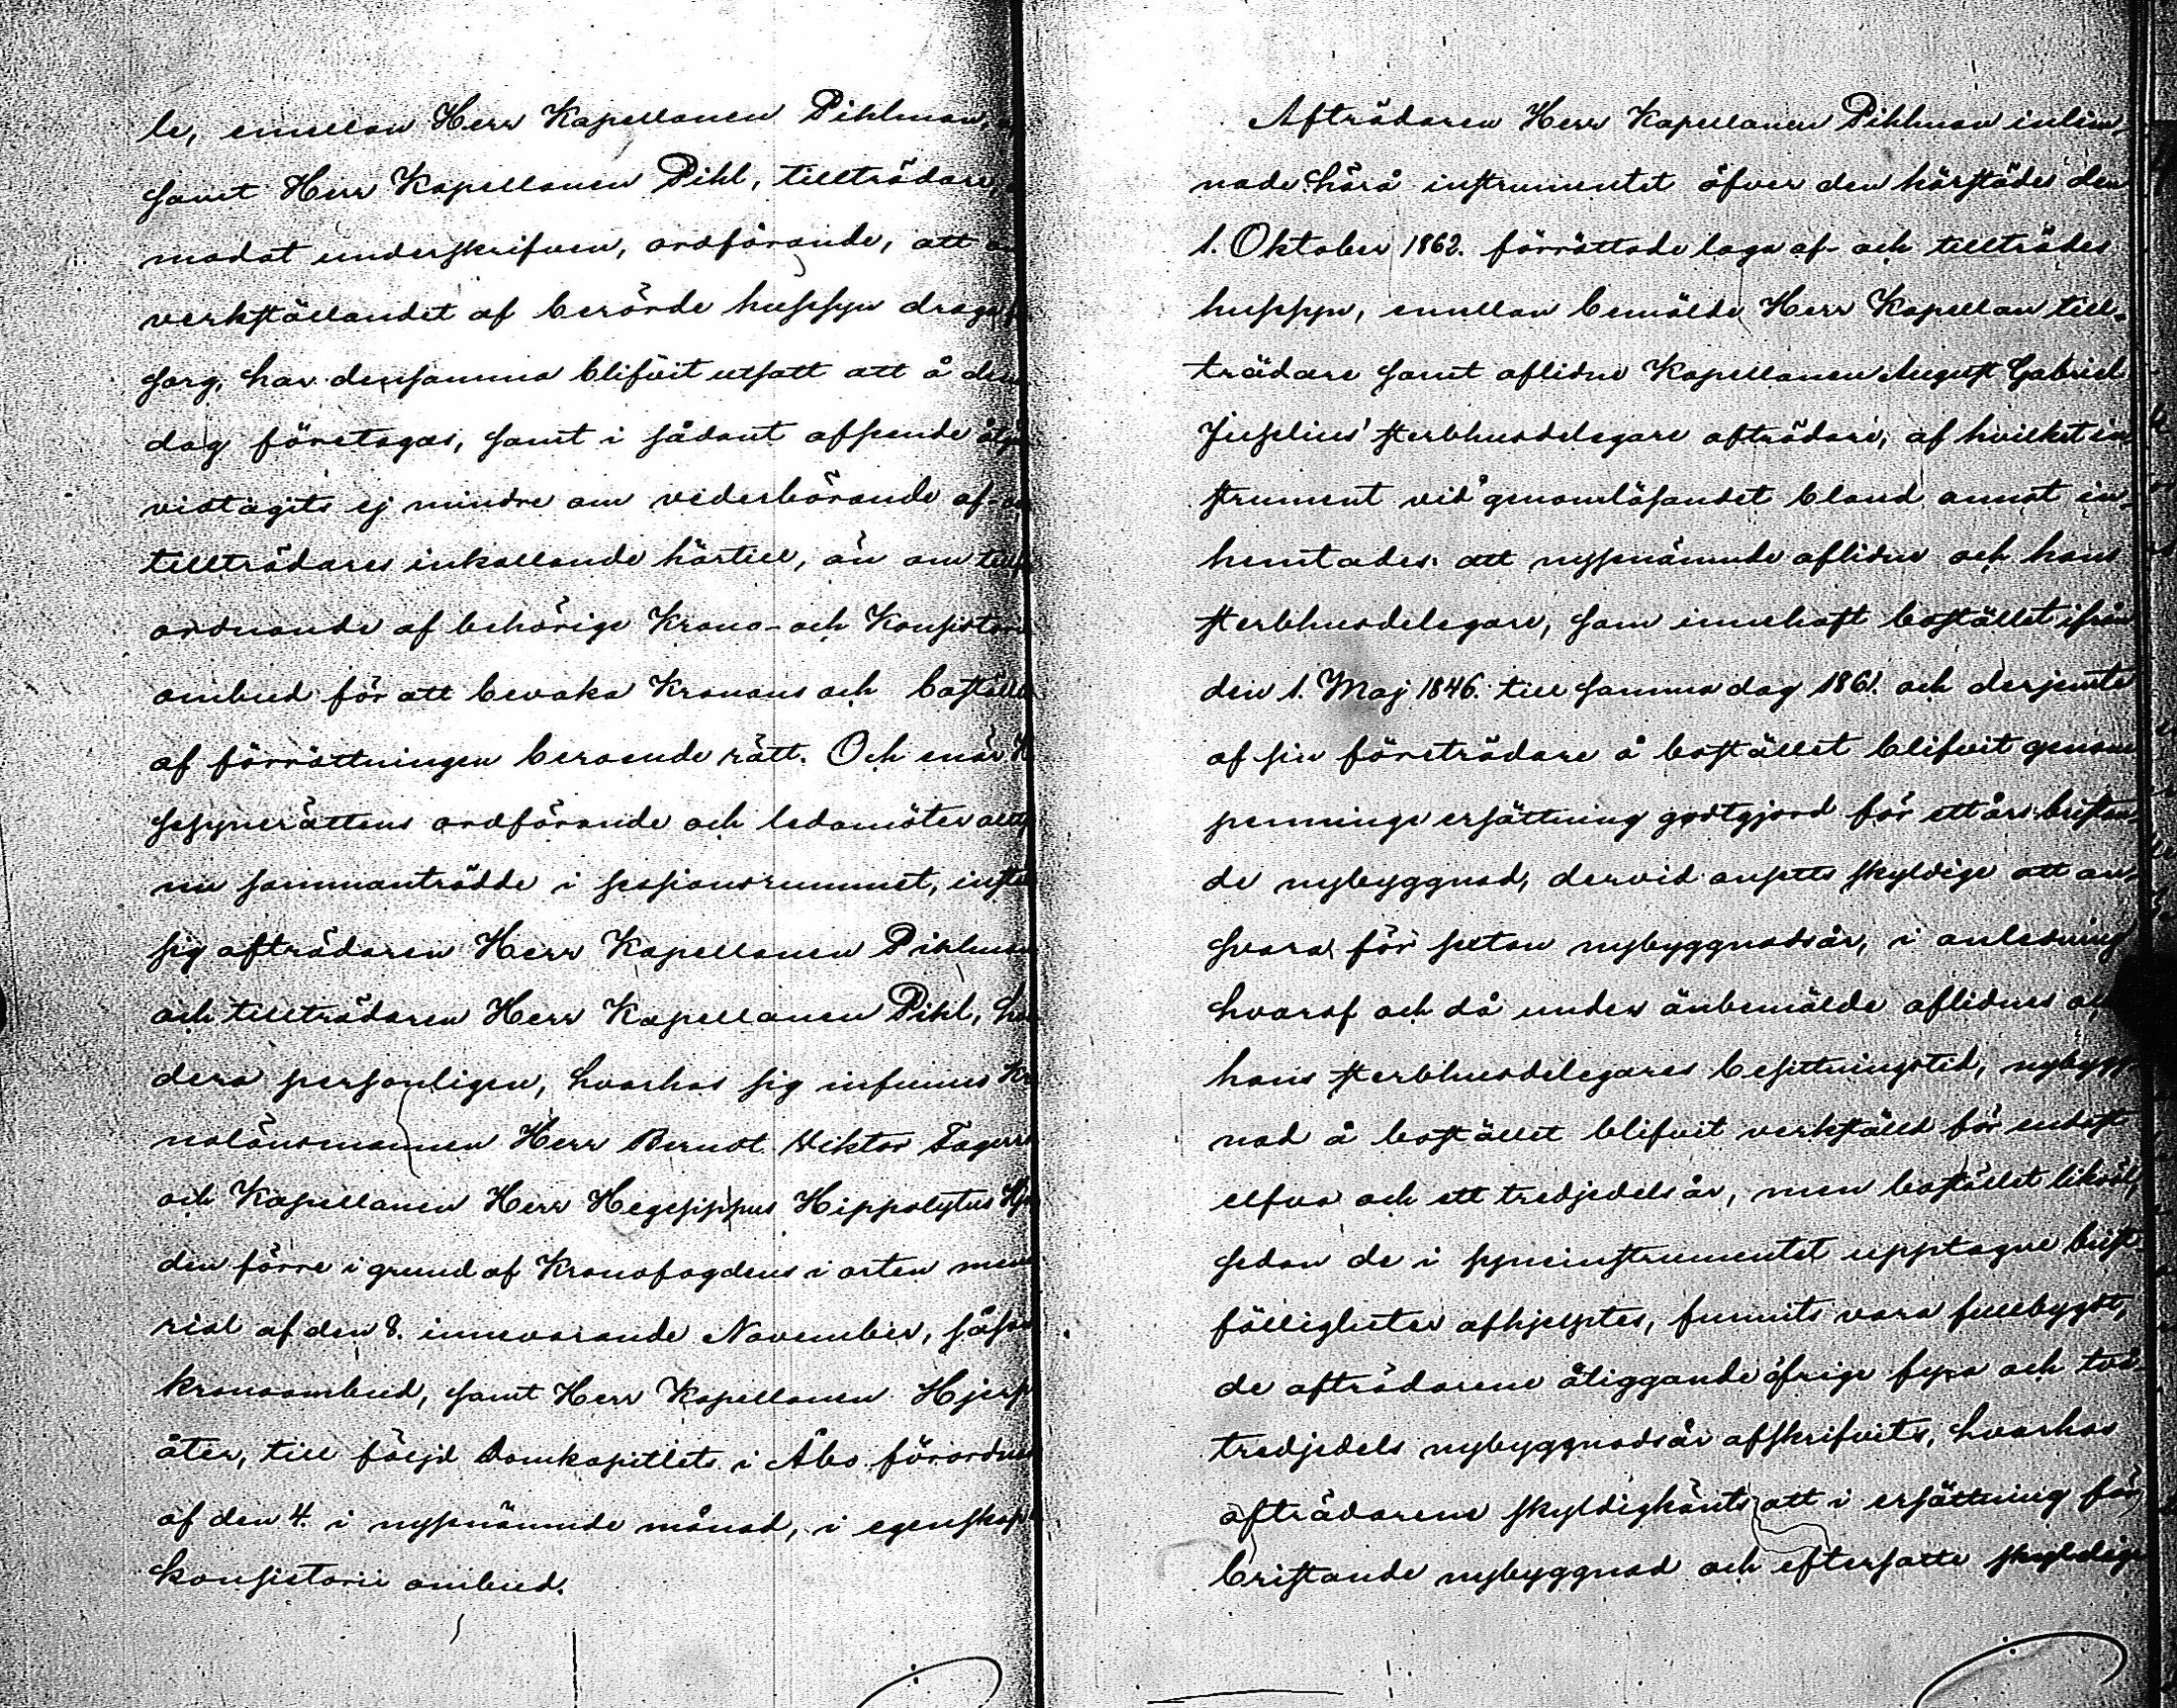 le, emellan Herr Kapellanen Pihlman,
samt Herr Kapellanen Pihl, tillträdare,
modat underskrifven, ordförande, att
verkställandet af berörde hussyn draga
sorg, har densamma blifvit utsatt att å den
dag företagas, samt i sådant afseende åtgä
vidtagits ej mindre om vederbörande af-
tillträdares inkallande härtill, än om
ordnande af behörige Krono- och Konsistor
ombud för att bevaka Kronans och boställe
af förrättningen beroende rätt. Och enär
synerättens ordförande och ledamöter
nu sammanträdde i sessionsrummet, instä
sig afträdaren Herr Kapellanen Pihlman
och tillträdaren Herr Kapellanen Pihl,
dera personligen, hvarhos sig infunnos Kr
nolänsmannen Herr Berndt Viktor Fager
och Kapellanen Herr Hegesippus Hippolytus Hj
den förre i grund af Kronofogdens i orten mem
rial af den 8. innevarande November, såsom
kronoombud, samt Herr Kapellanen Hjerp
åter, till följd Domkapitlets i Åbo förordnan
af den 4. i nyssnämnde månad, i egenskap
konsistorii ombud.
Afträdaren Herr Kapellanen Pihlman inlem-
nade härå instrumentet öfver den härstädes den
1. Oktober 1862. förrättade laga af- och tillträdes
hussyn, emellan bemälde Herr Kapellan till-
trädare samt aflidne Kapellanen August Gabriel
sterbhusdelegare afträdare, af hvilket in-
strument vid genomläsandet bland annat in-
hemtades: att nyssnämnde aflidne och hans
sterbhusdelegare, som innehaft bostället ifrån
den 1. Maj 1846. till samma dag 1861. och derjemte
af sin företrädare å bostället blifvit genom
penninge ersättning godtgjord för ett års bristan-
de nybyggnad, dervid ansetts skyldige att an-
svara för sexton nybyggnadsår, i anledning
hvaraf och då under änbemälde aflidnes och
hans sterbhusdelegares besittningstid, nybygg-
nad å bostället blifvit verkställd för endast
elfva och ett tredjedels år, men bostället likväl,
sedan de i syneinstrumentet upptagne brist-
fälligheter afhjelptes, funnits vara fullbygdt,
de afträdarene åliggande öfrige fyra och två
tredjedels nybyggnadsår afskrifvits, hvarhos
afträdarene skyldigkänts att i ersättning för
bristande nybyggnad och eftersatte skyldige